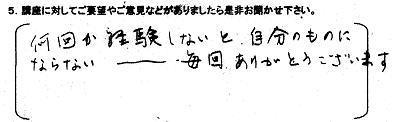 5. 講座に対してご要望やご意見などがありましたら是非お聞かせ下さい。
何回か経験しないと、自分のものに
ならない ―― 毎回ありがとうございます